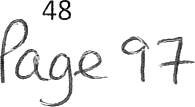 48
Page 97